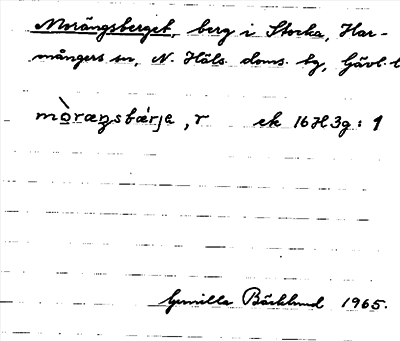 Morängsberget, berg i Stocka, Har-
mångers sn, N. Häls. doms. tg, Gävl. l
mò̱ræŋsbærja, r ek 16H3g: 1
Gunilla Bäcklund 1965.